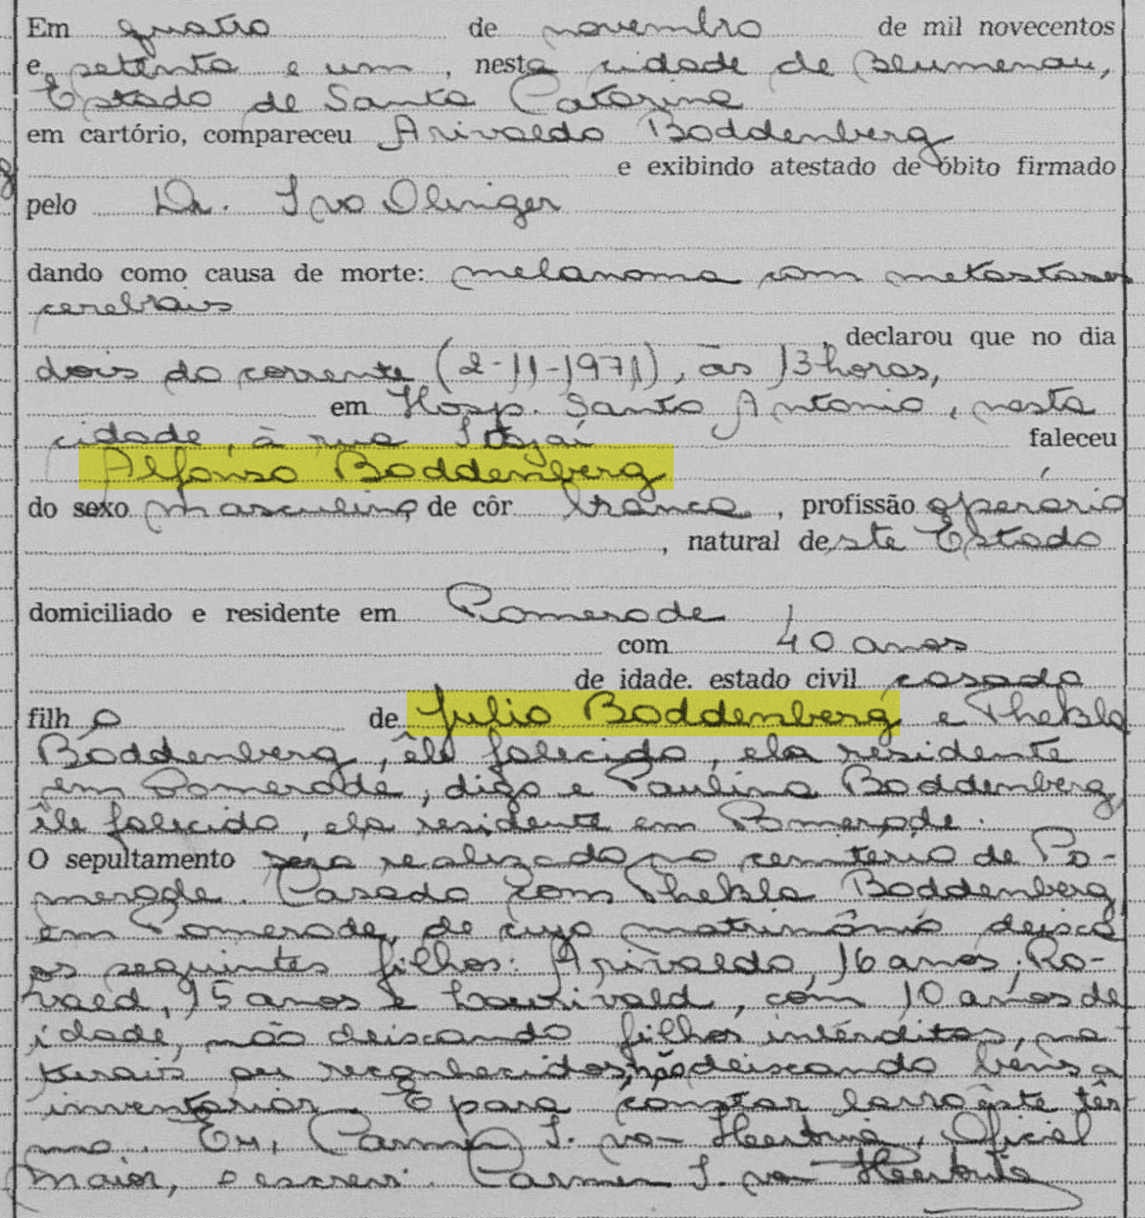 Em quatro de novembro de mil novecentos
e setenta e um, nesta cidade de Blumenau,
Estado de Santa Catarina
em cartório, compareceu Arivaldo Boddenberg
e exibindo atestado de óbito firmado
pelo Dr. Ivo Olinger
dando como causa de morte: melanoma com metastases
cerebrais
, declarou que no dia
dois do corrente (2-11-1971), às 13 horas,
em Hosp. Santo Antonio, nesta
cidade, à rua Itajaí faleceu
Alfonso Boddenberg
do sexo masculino, de côr branca, profissão operário
, natural deste Estado
domiciliado e residente em Pomerode
com 40 anos
de idade. estado civil casado
filho de Julio Boddenberg e Thekla
Boddenberg, êle falecido, ela residente
em Pomerode, digo e Paulina Boddenberg
êle falecido, ela residente em Pomerode.
O sepultamento será realizado no cemiterio de Po-
merode. Casado com Thekla Boddenberg
em Pomerode, de cujo matrimônio deixa
os seguintes filhos: Arivaldo, 16 anos, Ro-
vald, 15 anos e Lourivald, com 10 anos de
idade, não deixando filhos interditos, na-
turais ou reconhecidos, não deixando bens a
inventariar. E para constar lavro êste têr-
mo. Eu, Carmen S. Oficial
Maior, o escrevi. Carmen S.